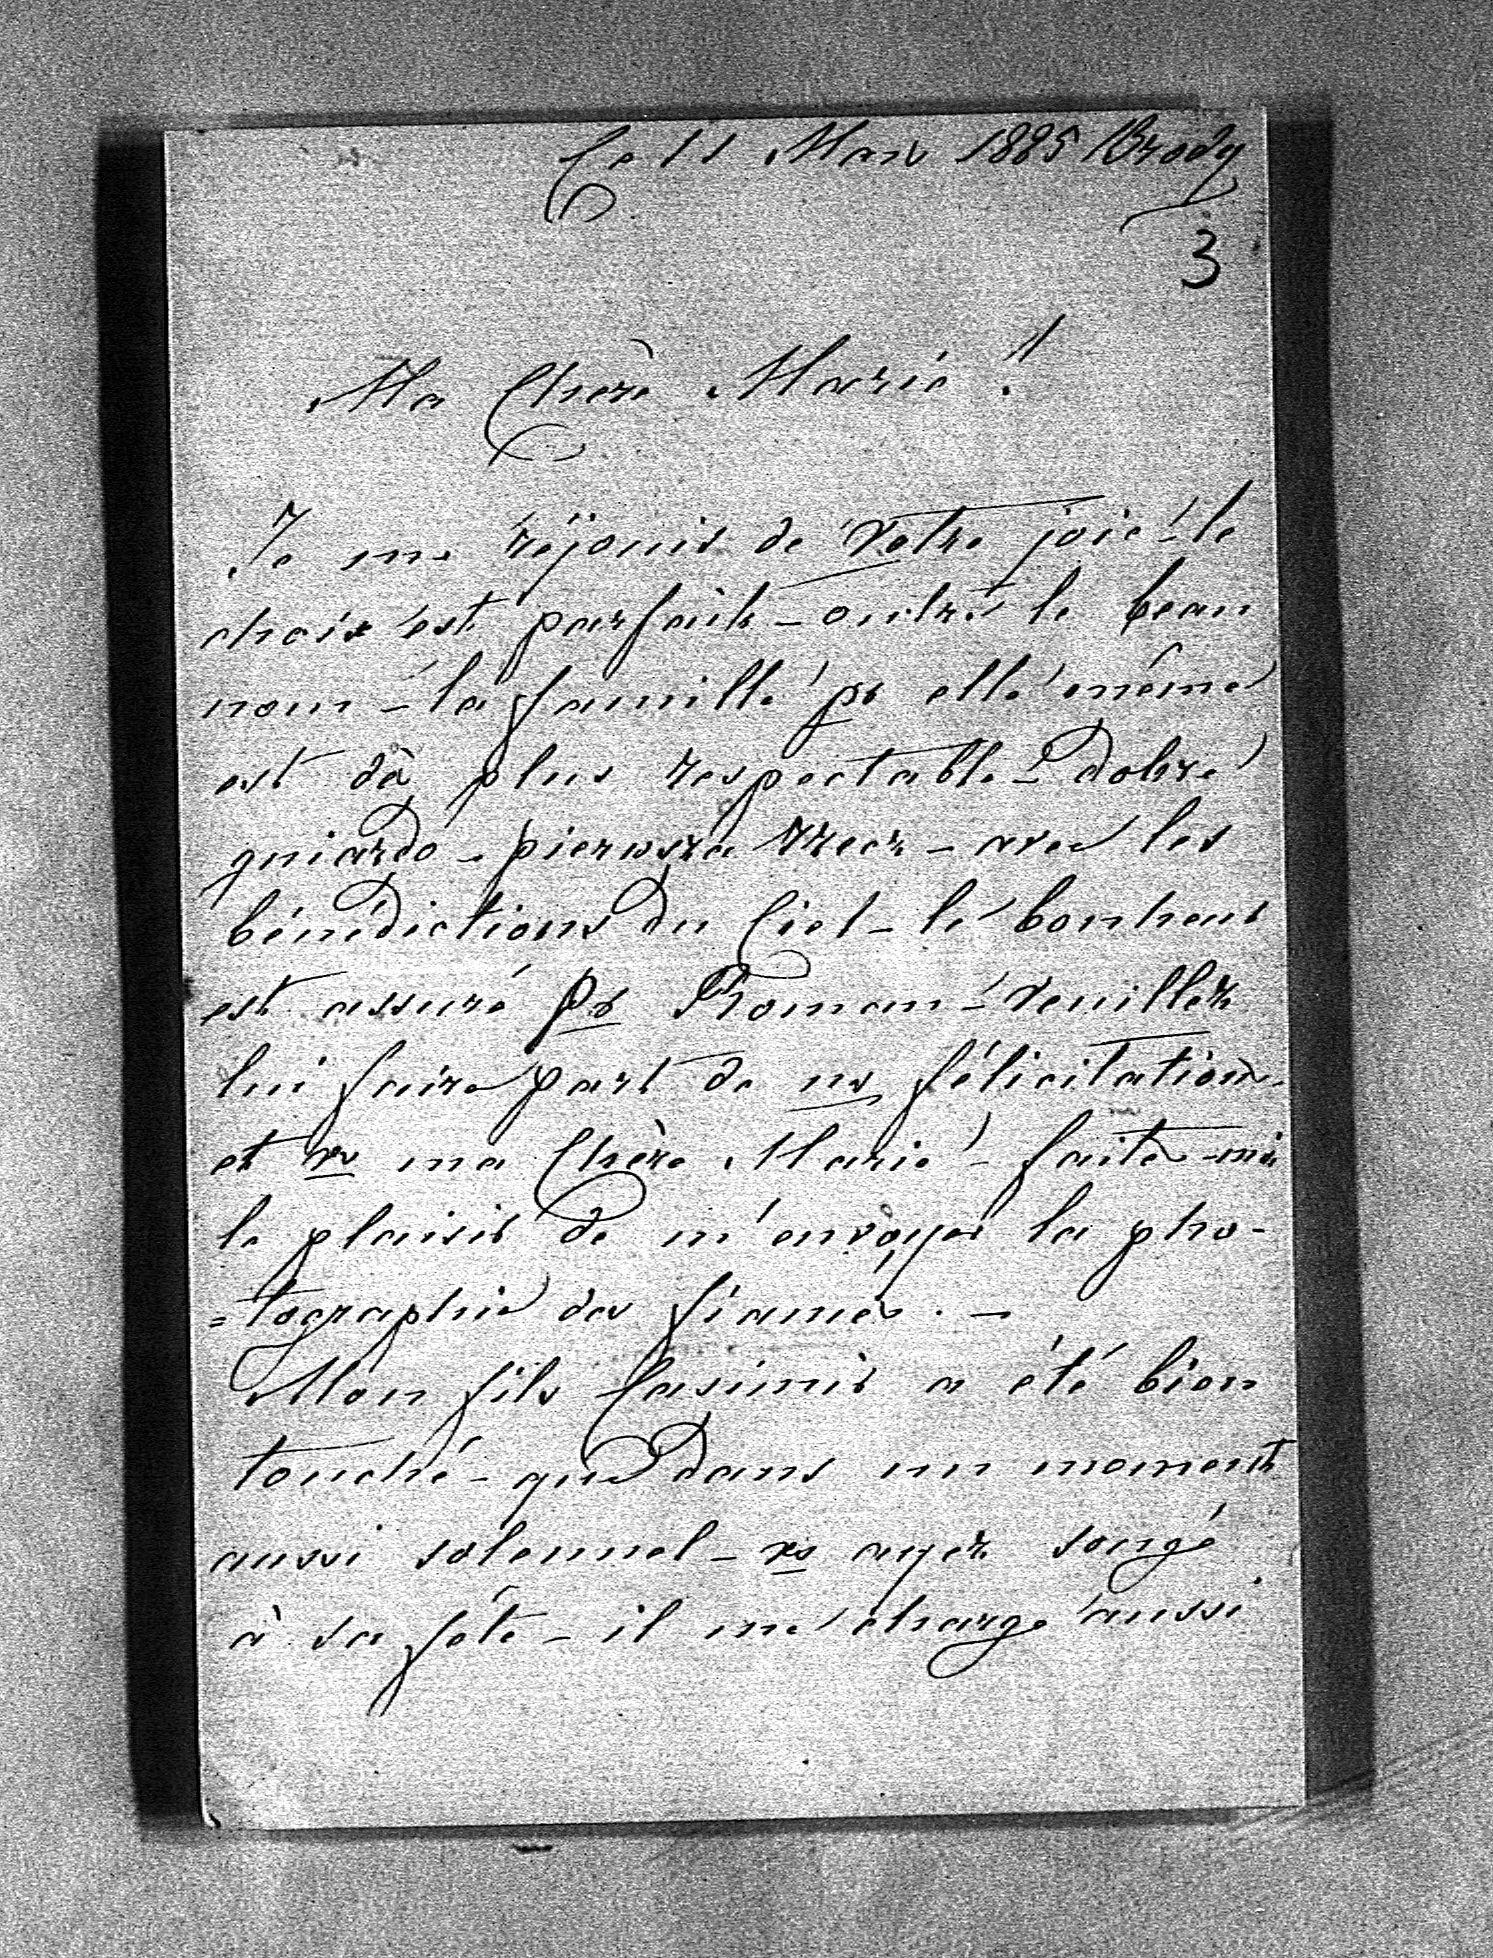 Ce 11 Mars 1885 Brody
3
Ma Chère Marie!
Je me réjouis de Votre joie – le
choix est parfait – outre le beau
nom – la famille pr elle même
est dà plus respectable – Dobre
gniazdo – pierwsza rzecz – avec les
bénédictions du Ciel – le bonheur
est assuré pr Roman – Veuillez
lui faire part de ns félicitations
et vs ma Chère Marie – faite-mi
le plaisir de m'envoyer la pho-
=tographie des fiancés. –
Mon fils Casimir a été bien
touché – que dans un moment
aussi solennel – vs ayez songé
à sa fête – il me charge aussi